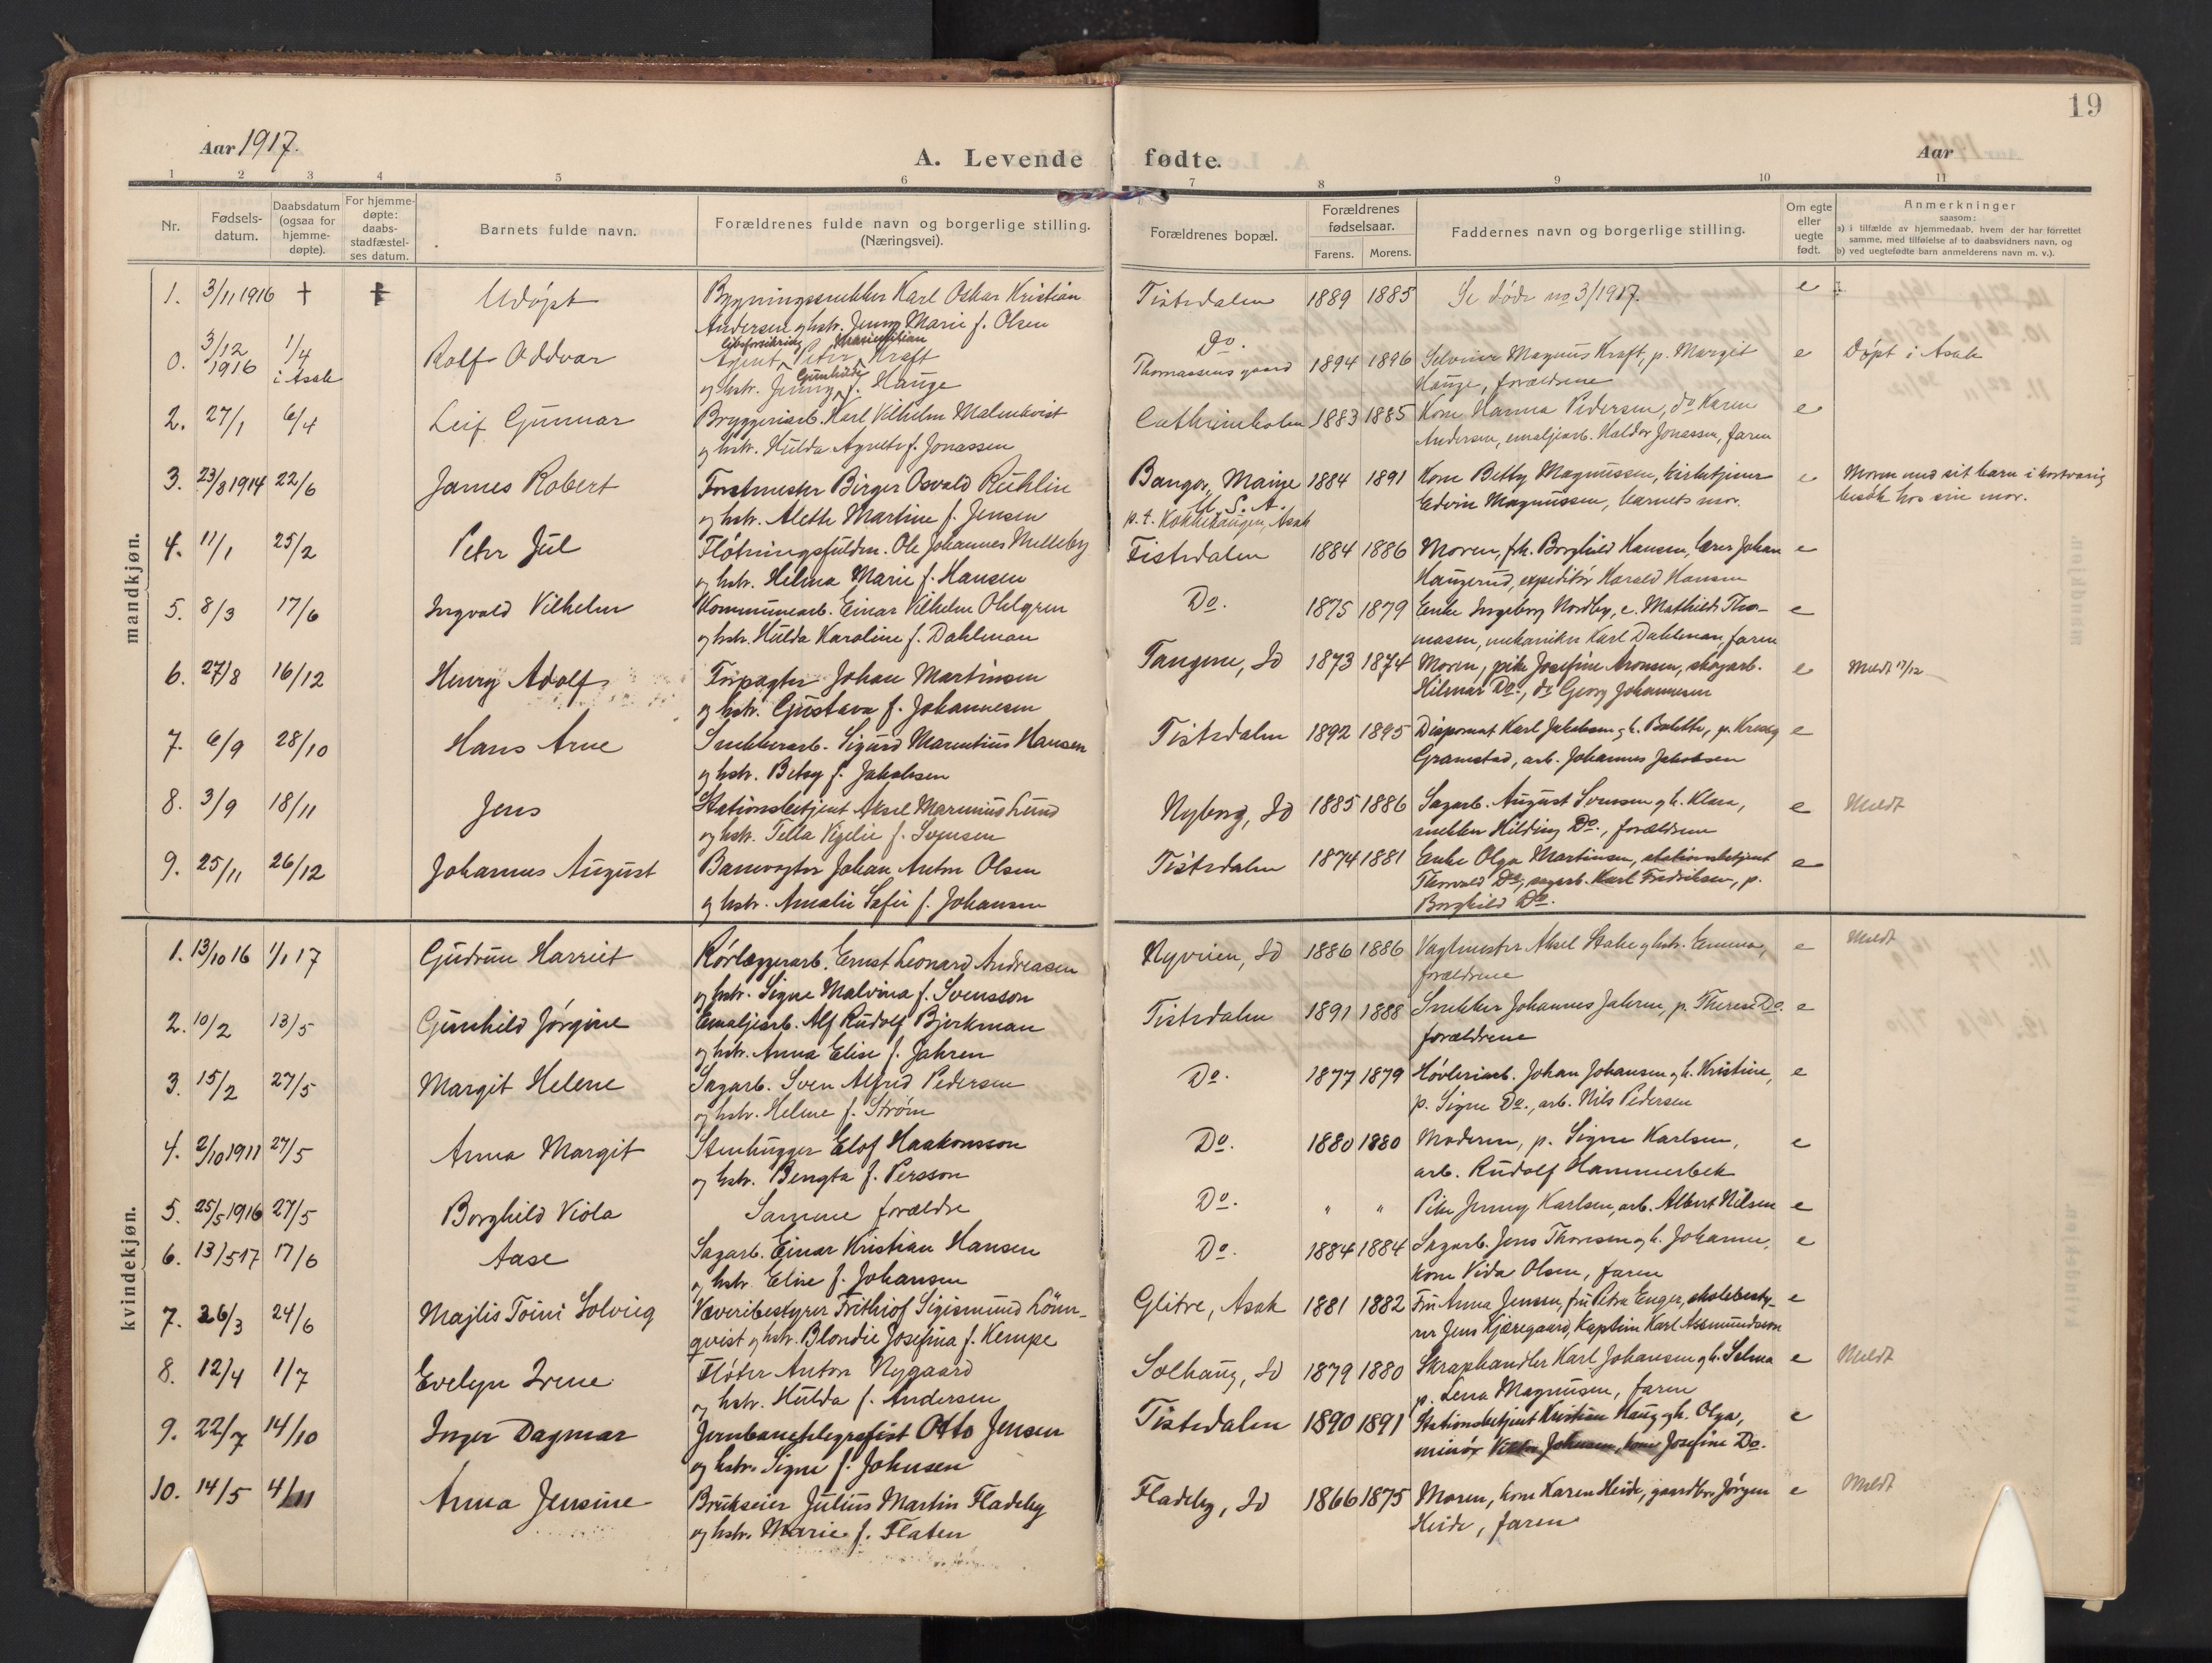 19
Aar 1917.
A. Levende fødte.
Aar
1 2 3 4 5 6 7 8 9 10 11
Nr.
Fødsels-
datum.
Daabsdatum
(ogsaa for
hjemme-
døpte).
For hjemme-
døpte:
daabs-
stadfæstel-
ses datum.
Barnets fulde navn.
Forældrenes fulde navn og borgerlige stilling.
(Næringsvei).
Forældrenes bopæl.
Forældrenes
fødselsaar.
Farens. Morens.
Faddernes navn og borgerlige stilling.
Om egte
eller
uegte
født.
Anmerkninger
saasom:
a) i tilfælde av hjemmedaab, hvem der har forrettet
samme, med tilføielse af to daabsvidners navn, og
b) ved uegtefødte barn anmelderens navn m. v.).
mandkjøn.
1. 3/11 1916 † Udøpt Bygningssnekker Karl Oskar Kristian Tistedalen 1889 1885 Se døde no 3/1917. e
Andersen og hstr. Jenny Marie f. Olsen
0. 3/12 1916 1/4 i Asak Rolf Oddvar Livsforsikrings Agent Peter Kraft Do. Thomassens gaard 1894 1896 Magnus Kraft, p. Margit e Døpt i Asak
og hstr. Jenny Gunhilde f. Hauge Hauge, forældrene
2. 27/1 6/4 Leif Gunnar Bryggeriarb. Karl Vilhelm Malmkvist Cathrineholm 1883 1885 Kone Hanna Pedersen, do Karen e
og hstr. Hulda Agnete f. Jonassen Andersen, emaljearb. Haldor Jonassen, faren
3. 23/8 1914 22/6 James Robert Forstmester Birger Osvald Rühlin Bangor, Maine 1884 1891 Kone Betty Magnussen, kirketjener e Moren med sit barn i kortvarig
U. S. A.
og hstr. Aleth Martine f. Jensen p. t. Kokkehaugen, Asak Edvin Magnussen, barnets mor. besøk hos sin mor.
4. 11/1 25/2 Peter Jul Fløtningsfuldm. Ole Johannes Melleby Tistedalen 1884 1886 Moren, frk. Borghild Hansen, lærer Johan e
og hstr. Helma Marie f. Hansen Haugerud, expeditør Harald Hansen
5. 8/3 17/6 Ingvald Vilhelm Kommunearb. Einar Vilhelm Ohlgren Do. 1875 1879 Enke Ingeborg Nordby, e. Mathilde Tho- e
og hstr. Hulda Karoline f. Dahlman massen, mekaniker Karl Dahlman, faren
6. 27/8 16/12 Henry Adolf Forpagter Johan Martinsen Tangene, Id 1873 1874 Moren, pike Josefine Aronsen, skogarb. e Meldt 17/12
og hstr. Gustava f. Johannesen Hilmar Do., do Georg Johannesen
7. 6/9 28/10 Hans Arne Snekkerarb. Sigurd Marentius Hansen Tistedalen 1892 1895 Disponent Karl Jakobsen og h. Bolette, p. e
og hstr. Betsy f. Jakobsen Gramstad, arb. Johannes Jakobsen
8. 3/9 18/11 Jens Stationsbetjent Aksel Marinius Lund Nyborg, Id 1885 1886 Sagarb. August Svensen og h. Klara, e Meldt
og hstr. Tella f. Svensen snekker Hilding Do., forældrene
9. 25/11 26/12 Johannes August Banevogter Johan Anton Olsen Tistedalen 1874 1881 Enke Olga Martinsen, stationsbetjent e
og hstr. Amalie Sofie f. Johansen Thorvald Do, sagarb. Karl Fredriksen, p.
Borghild Do.
kvindekjøn.
1. 13/10 16 1/1 17 Gudrun Harriet Rørlæggerarb. Ernst Leonard Andreasen Nyveien, Id 1886 1886 Vagtmester Aksel Stake og hstr. Emma, e Meldt
og hstr. Signe Malvina f. Svensson forældrene
2. 10/2 13/5 Gunhild Jørgine Emaljearb. Alf Rudolf Bjerkman Tistedalen 1891 1888 Snekker Johannes Jahren, p. Therese Do. e
og hstr. Anna Elise f. Jahren forældrene
3. 15/2 27/5 Margit Helene Sagarb. Sven Alfred Pedersen Do. 1877 1879 Høvleriarb. Johan Johansen og h. Kristine, e
og hstr. Helene f. Strøm p. Signe Do., arb. Nils Pedersen
4. 2/10 1911 27/5 Anna Margit Stenhugger Elof Haakonsson Do. 1880 1880 Moderen, p. Signe Karlsen, e
og hstr. Bengta f. Persson arb. Rudolf Hammerbek
5. 25/5 1916 27/5 Borghild Viola Samme forældre Do. " " Pike Jenny Karlsen, arb. Albert Nilsen e
6. 13/5 17 17/6 Aase Sagarb. Einar Kristian Hansen Do. 1884 1884 Sagarb. Jens Thoresen og h. Johanne, e
og hstr. Elise f. Johansen kone Vida Olsen, faren
7. 26/3 24/6 Majlis Toini Solveig Væveribestyrer Frithiof Sigismund Lönn- Glitre, Asak 1881 1882 Fru Anna Jensen, fru Petra Enger, skolebesty- e
qvist og hstr. Blondie Josefina f. Kempe rer Jens Kjæregaard, Kaptein Karl Assmundsson
8. 12/4 1/7 Evelyn Irene Fløter Anton Nygaard Solhaug, Id 1879 1880 Skraphandler Karl Johansen og h. Selma e Meldt
og hstr. Hulda f. Andersen p. Lena Magnusen, faren
9. 22/7 14/10 Inger Dagmar Jernbanetelegrafist Otto Jensen Tistedalen 1890 1891 Stationsbetjent Kristian Haug og h. Olga, e
og hstr. Signe f. Johnsen minør Viktor Johnsen, kone Josefine Do.
10. 14/5 4/11 Anna Jensine Brukseier Julius Martin Fladeby Fladeby, Id 1866 1875 Moren, kone Karen Heide, gaardbr. Jørgen e Meldt
og hstr. Marie f. Flaten Heide, faren